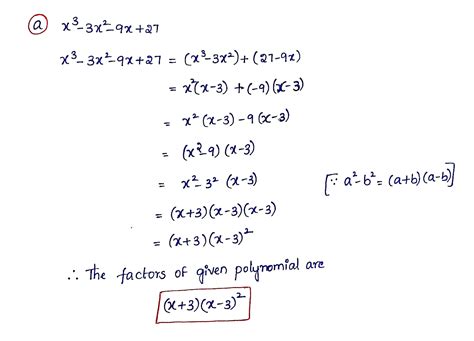 (a) x³-3x²-9x+27
x³-3x²-9x+27 = (x³-3x²)+(27-9x)
= x²(x-3) +(-9)(x-3)
= x²(x-3)-9(x-3)
= (x²-9)(x-3)
= x²-3² (x-3) [∵ a²-b²=(a+b)(a-b)]
= (x+3)(x-3)(x-3)
= (x+3)(x-3)²
∴ The factors of given polynomial are
(x+3)(x-3)²